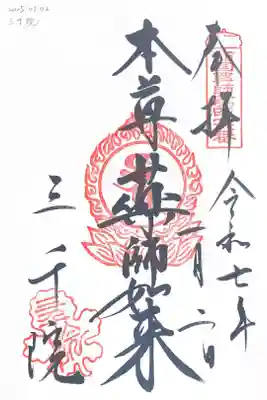 2025.01.02
三千院
奉拝
令和七年
一月二日
本尊薬師如来
三千院